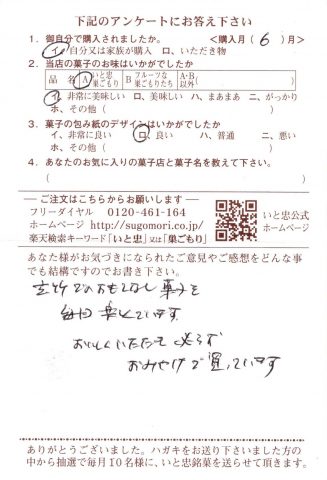 下記のアンケートにお答え下さい
1．御自分で購入されましたか。　＜購入月（ 6 ）月＞
イ、自分又は家族が購入　ロ、いただき物
2．当店の菓子のお味はいかがでしたか
品　名　A いと忠巣ごもり　B フルーツな巣ごもりたち　A・B以外（　　　）
イ、非常に美味しい　ロ、美味しい　ハ、まあまあ　ニ、がっかり
ホ、その他（　　　）
3．菓子の包み紙のデザインはいかがでしたか
イ、非常に良い　ロ、良い　ハ、普通　ニ、悪い
ホ、その他（　　　）
4．あなたのお気に入りの菓子店と菓子名を教えて下さい。
（　　　）
ご注文はこちらからお願いします
フリーダイヤル　0120-461-164
ホームページ　http://sugomori.co.jp/
楽天検索キーワード「いと忠」又は「巣ごもり」
いと忠公式
ホームページ
あなた様がお気づきになられたご意見やご感想をどんな事
でも結構ですのでお書き下さい。
でのおもてなし菓子を
毎回楽しんでいます
おいしくいただいて必ず
おみやげで買っています
ありがとうございました。ハガキをお送り下さいました方の
中から抽選で毎月10名様に、いと忠銘菓を送らせて頂きます。